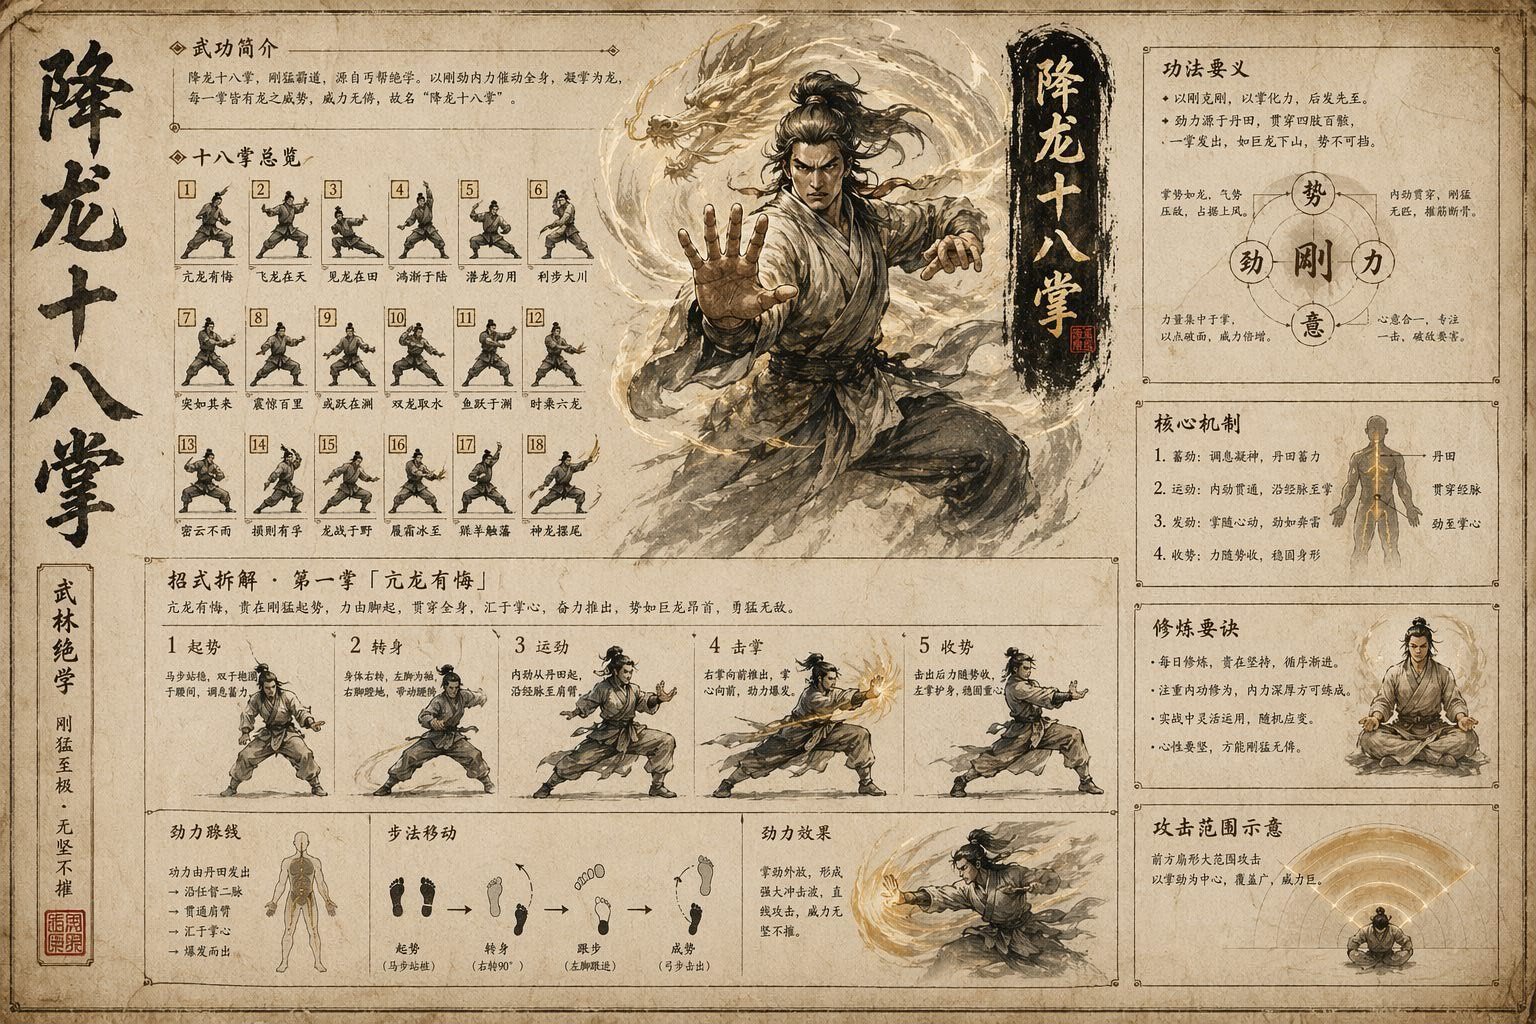 降龙十八掌
武林绝学
刚猛至极·无坚不摧
武功简介
降龙十八掌，刚猛霸道，源自丐帮绝学。以刚劲内力催动全身，凝掌为龙，
每一掌皆有龙之威势，威力无俦，故名“降龙十八掌”。
十八掌总览
1
亢龙有悔
2
飞龙在天
3
见龙在田
4
鸿渐于陆
5
潜龙勿用
6
利步大川
7
突如其来
8
震惊百里
9
或跃在渊
10
双龙取水
11
鱼跃于渊
12
时乘六龙
13
密云不雨
14
损则有孚
15
龙战于野
16
履霜冰至
17
羝羊触藩
18
神龙摆尾
降龙十八掌
功法要义
以刚克刚，以掌化力，后发先至。
劲力源于丹田，贯穿四肢百骸，
一掌发出，如巨龙下山，势不可挡。
掌势如龙，气势
压敌，占据上风。
势
内劲贯穿，刚猛
无匹，摧筋断骨。
劲
刚
力
力量集中于掌，
以点破面，威力倍增。
意
心意合一，专注
一击，破敌要害。
核心机制
1. 蓄劲：调息凝神，丹田蓄力
2. 运劲：内劲贯通，沿经脉至掌
3. 发劲：掌随心动，劲如奔雷
4. 收势：力随势收，稳固身形
丹田
贯穿经脉
劲至掌心
招式拆解·第一掌「亢龙有悔」
亢龙有悔，贵在刚猛起势，力由脚起，贯穿全身，汇于掌心，奋力推出，势如巨龙昂首，勇猛无敌。
1 起势
马步站稳，双手抱圆
于腰间，调息蓄力
2 转身
身体右转，左脚为轴，
右脚蹬地，带动腰胯
3 运劲
内劲从丹田起，
沿经脉至肩臂
4 击掌
右掌向前推出，掌
心向前，劲力爆发。
5 收势
击出后力随势收，
左掌护身，稳固重心
修炼要诀
·每日修炼，贵在坚持，循序渐进。
·注重内功修为，内力深厚方可炼成。
·实战中灵活运用，随机应变。
·心性要坚，方能刚猛无俦。
劲力路线
功力由丹田发出
→ 沿任督二脉
→ 贯通肩臂
→ 汇于掌心
→ 爆发而出
步法移动
起势
（马步站桩）
转身
（右转90°）
跟步
（左脚跟进）
成势
（弓步击出）
劲力效果
掌劲外放，形成
强大冲击波，直
线攻击，威力无
坚不摧。
攻击范围示意
前方扇形大范围攻击
以掌劲为中心，覆盖广，威力巨。